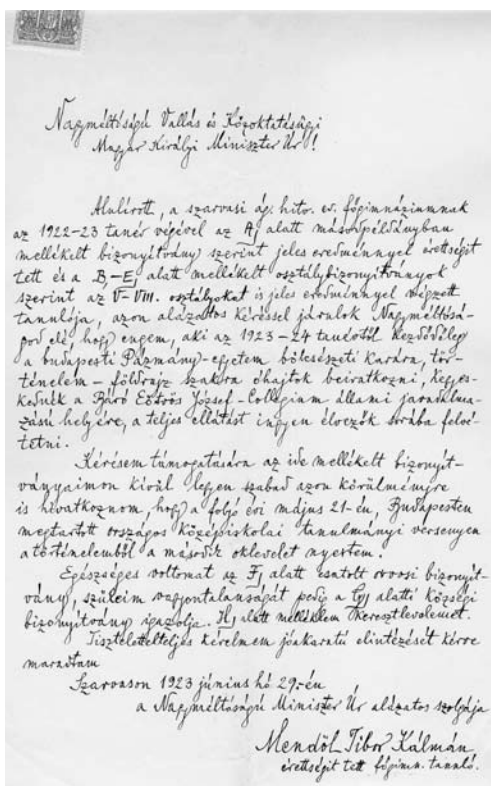 Nagyméltóságú Vallás és Közoktatásügyi
Magyar Királyi Miniszter Úr!
Alulírott, a szarvasi ág. hitv. ev. főgimnáziumnak
az 1922-23 tanév végével az A, alatt másodpéldányban
mellékelt bizonyítvány szerint jeles eredménnyel érettségit
tett és a B,-E, alatt mellékelt osztálybizonyítványok
szerint az V-VIII. osztályokat is jeles eredménnyel végzett
tanulója, azon alázatos kéréssel járulok Nagyméltósá-
god elé, hogy engem, aki az 1923-24 tanévtől kezdődőleg
a budapesti Pázmány-egyetem bölcsészeti karára, tör-
ténelem-földrajz szakra óhajtok beiratkozni, kegyes-
kednék a Báró Eötvös József-Collegium állami javadalma-
zású helyére, a teljes ellátást ingyen élvezők sorába felvé-
tetni.
Kérésem támogatására az ide mellékelt bizonyít-
ványaimon kívül legyen szabad azon körülményre
is hivatkoznom, hogy a folyó évi május 21-én, Budapesten
megtartott országos középiskolai tanulmányi versenyen
a történelemből a második oklevelet nyertem.
Egészséges voltomat az F, alatt csatolt orvosi bizonyít-
vány, szüleim vagyontalanságát pedig a G, alatti községi
bizonyítvány igazolja. H, alatt mellékelem keresztlevelemet.
Tiszteletteljes kérelmem jóakaratú elintézését kérve
maradtam
Szarvason 1923 június hó 29-én
a Nagyméltóságú Miniszter Úr alázatos szolgája
Mendöl Tibor Kálmán
érettségit tett főgimn. tanuló.